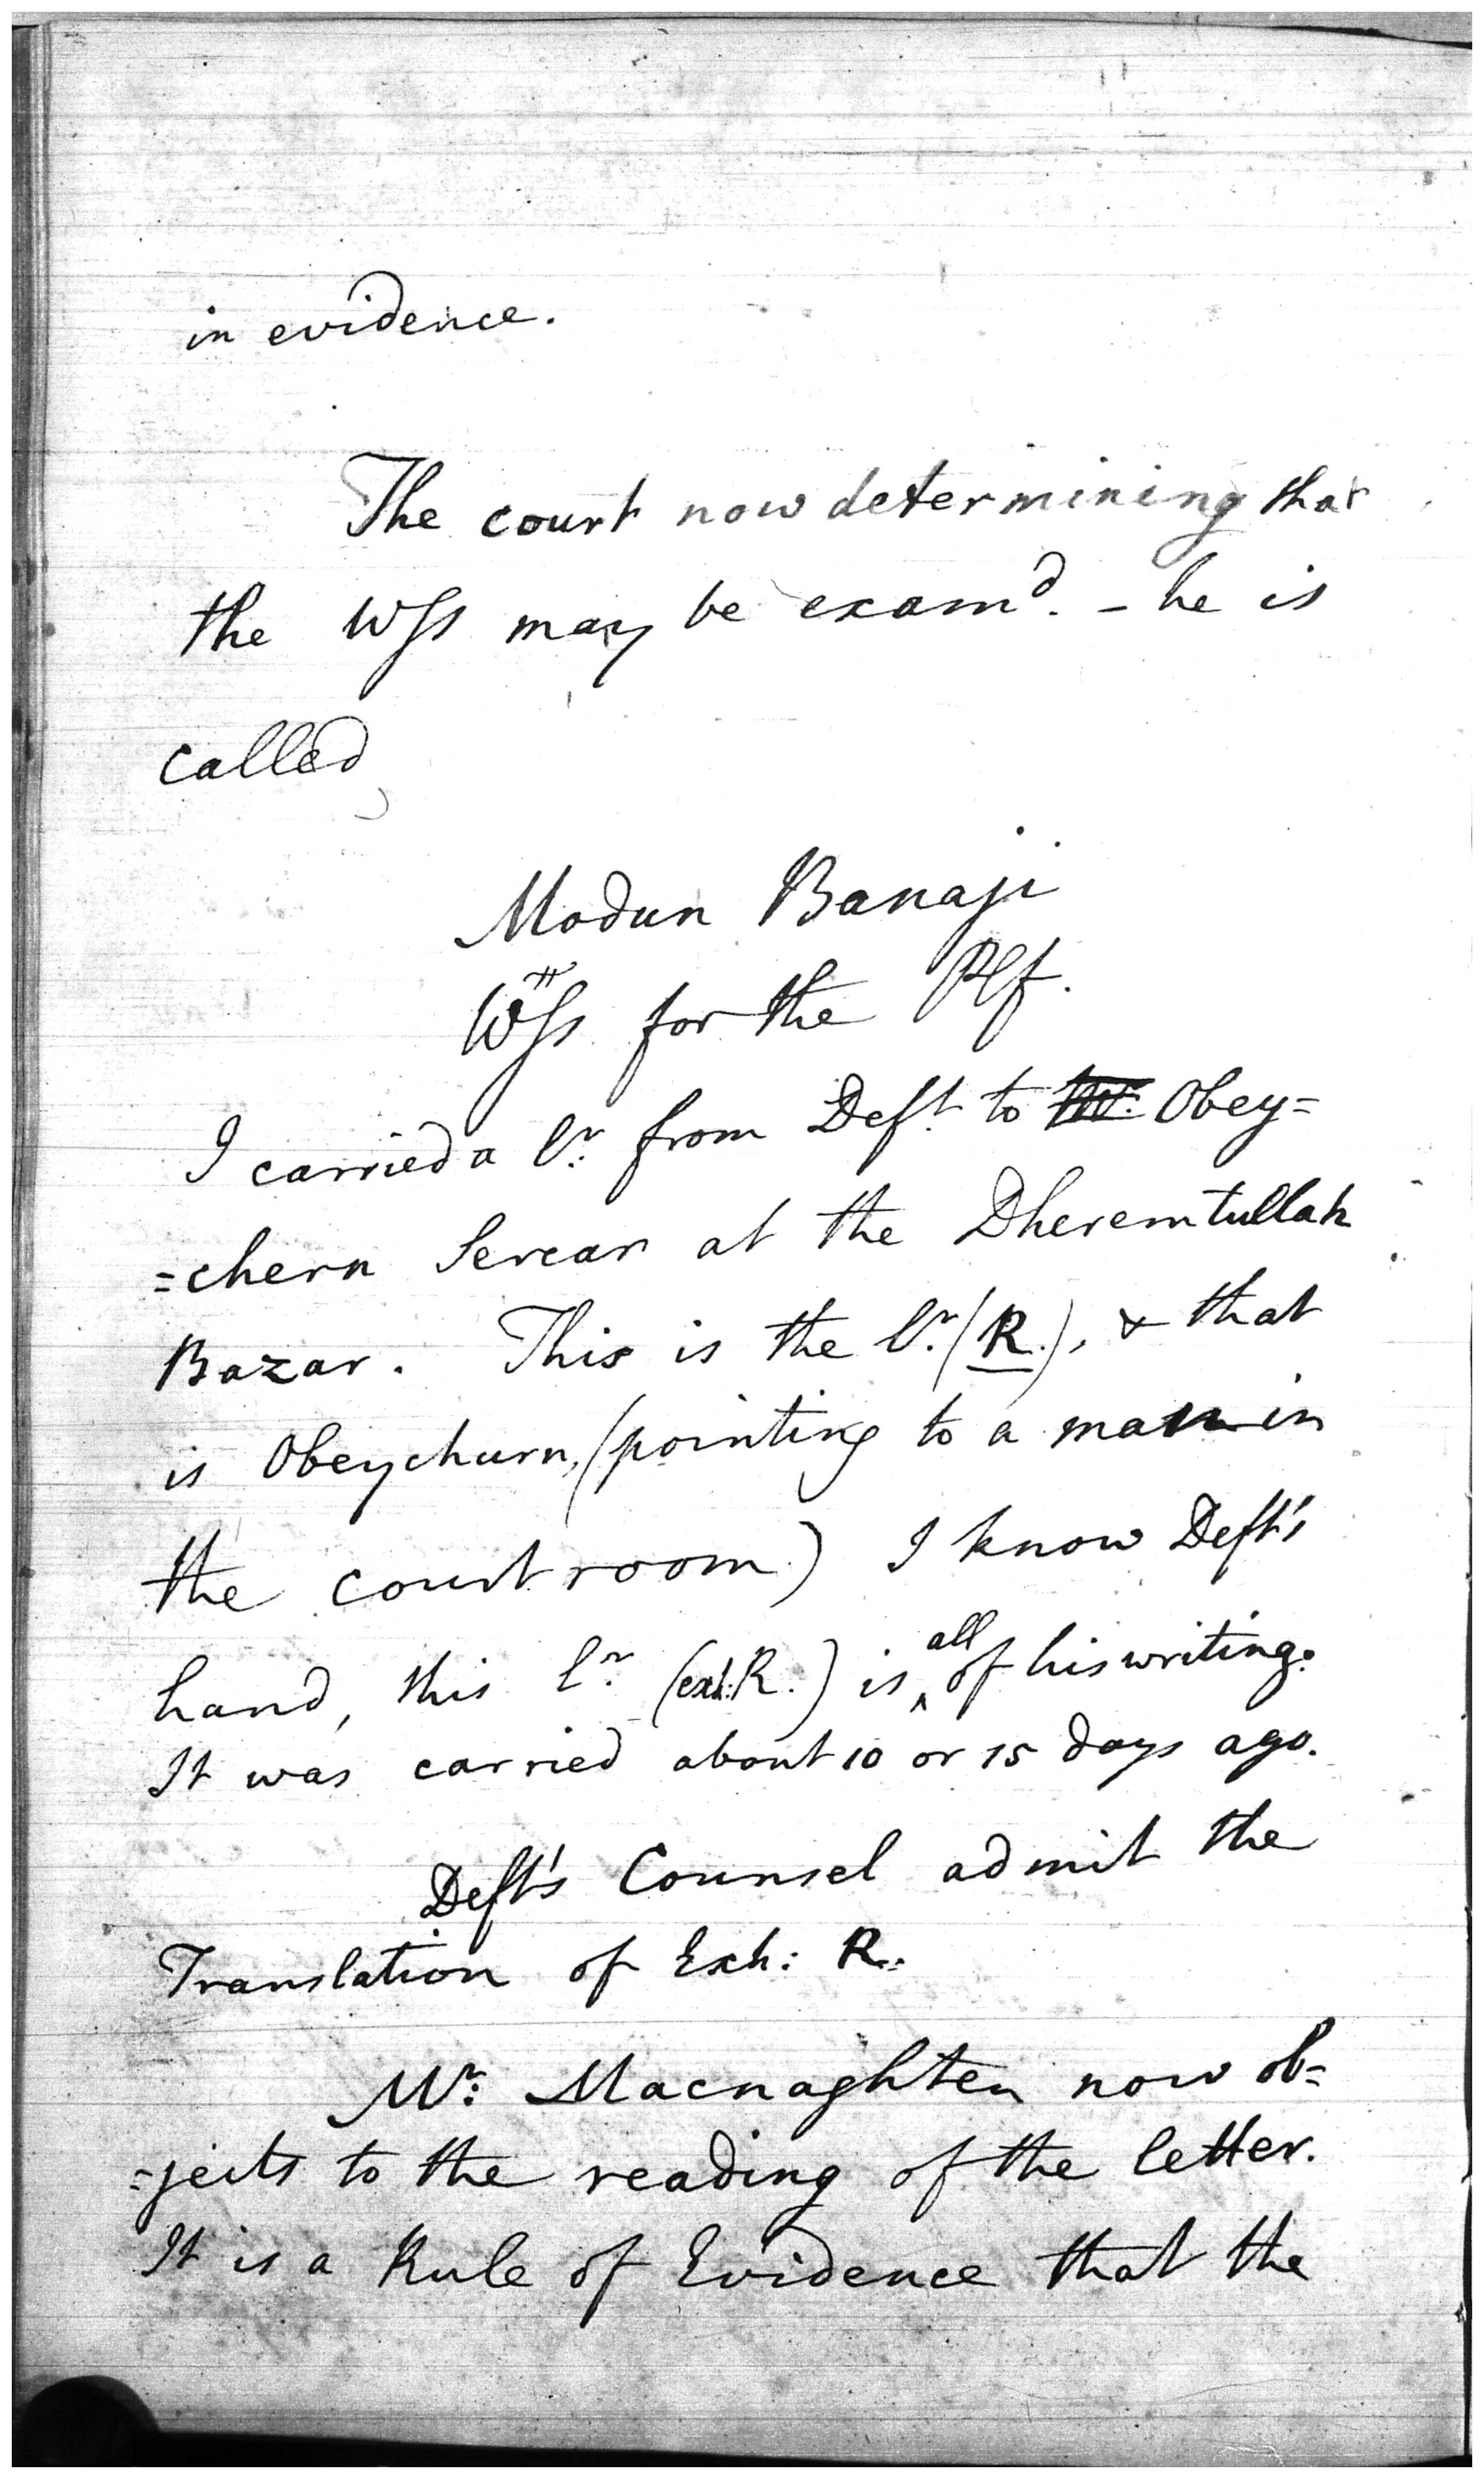 in evidence.
The court now determining that
the Wss may be examd. - he is
called,
Modun Banaji
Wss for the Plf.
I carried a lr: from Deft. to Obey=
=chern Sercar at the Dheremtullah
Bazar. This is the lr. (R.), & that
is Obeychurn, (pointing to a man in
the court room) I know Deft's
hand, this lr. (exh: R.) is all of his writing.
It was carried about 10 or 15 days ago.
Deft's Counsel admit the
Translation of Exh: R.
Mr: Macnaghten now ob=
=jects to the reading of the letter.
It is a Rule of Evidence that the